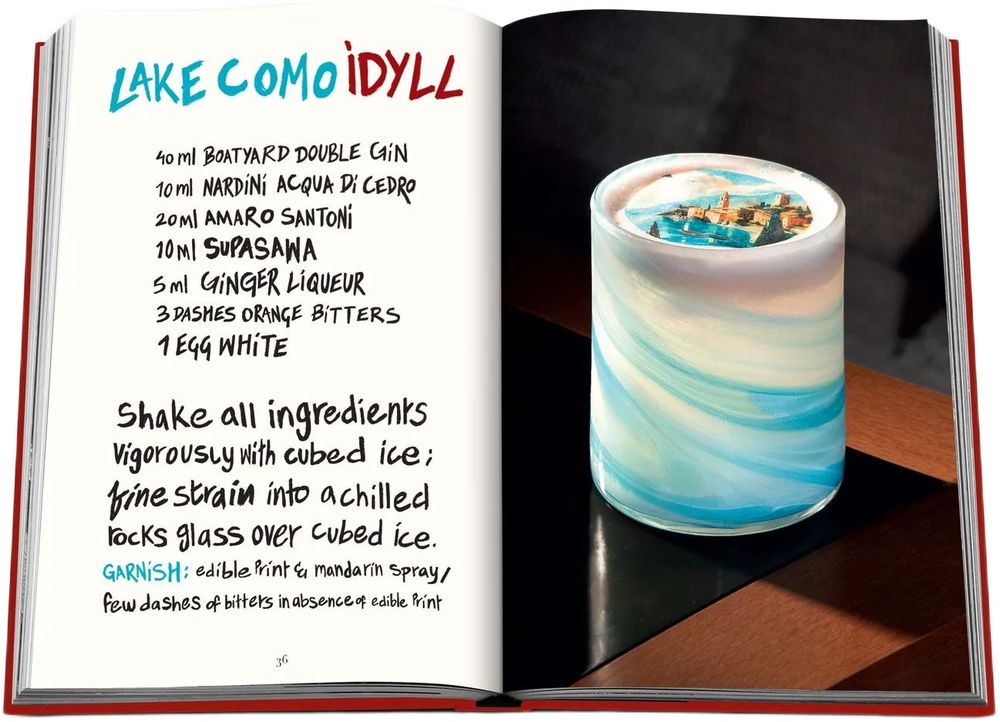 LAKE COMO IDYLL
40 ml BOATYARD DOUBLE GIN
10 ml NARDINI ACQUA DI CEDRO
20 ml AMARO SANTONI
10 ml SUPASAWA
5 ml GINGER LIQUEUR
3 DASHES ORANGE BITTERS
1 EGG WHITE
Shake all ingredients
Vigorously with cubed ice;
fine strain into a chilled
rocks glass over cubed ice.
GARNISH: edible Print & mandarin spray/
few dashes of bitters in absence of edible Print
36